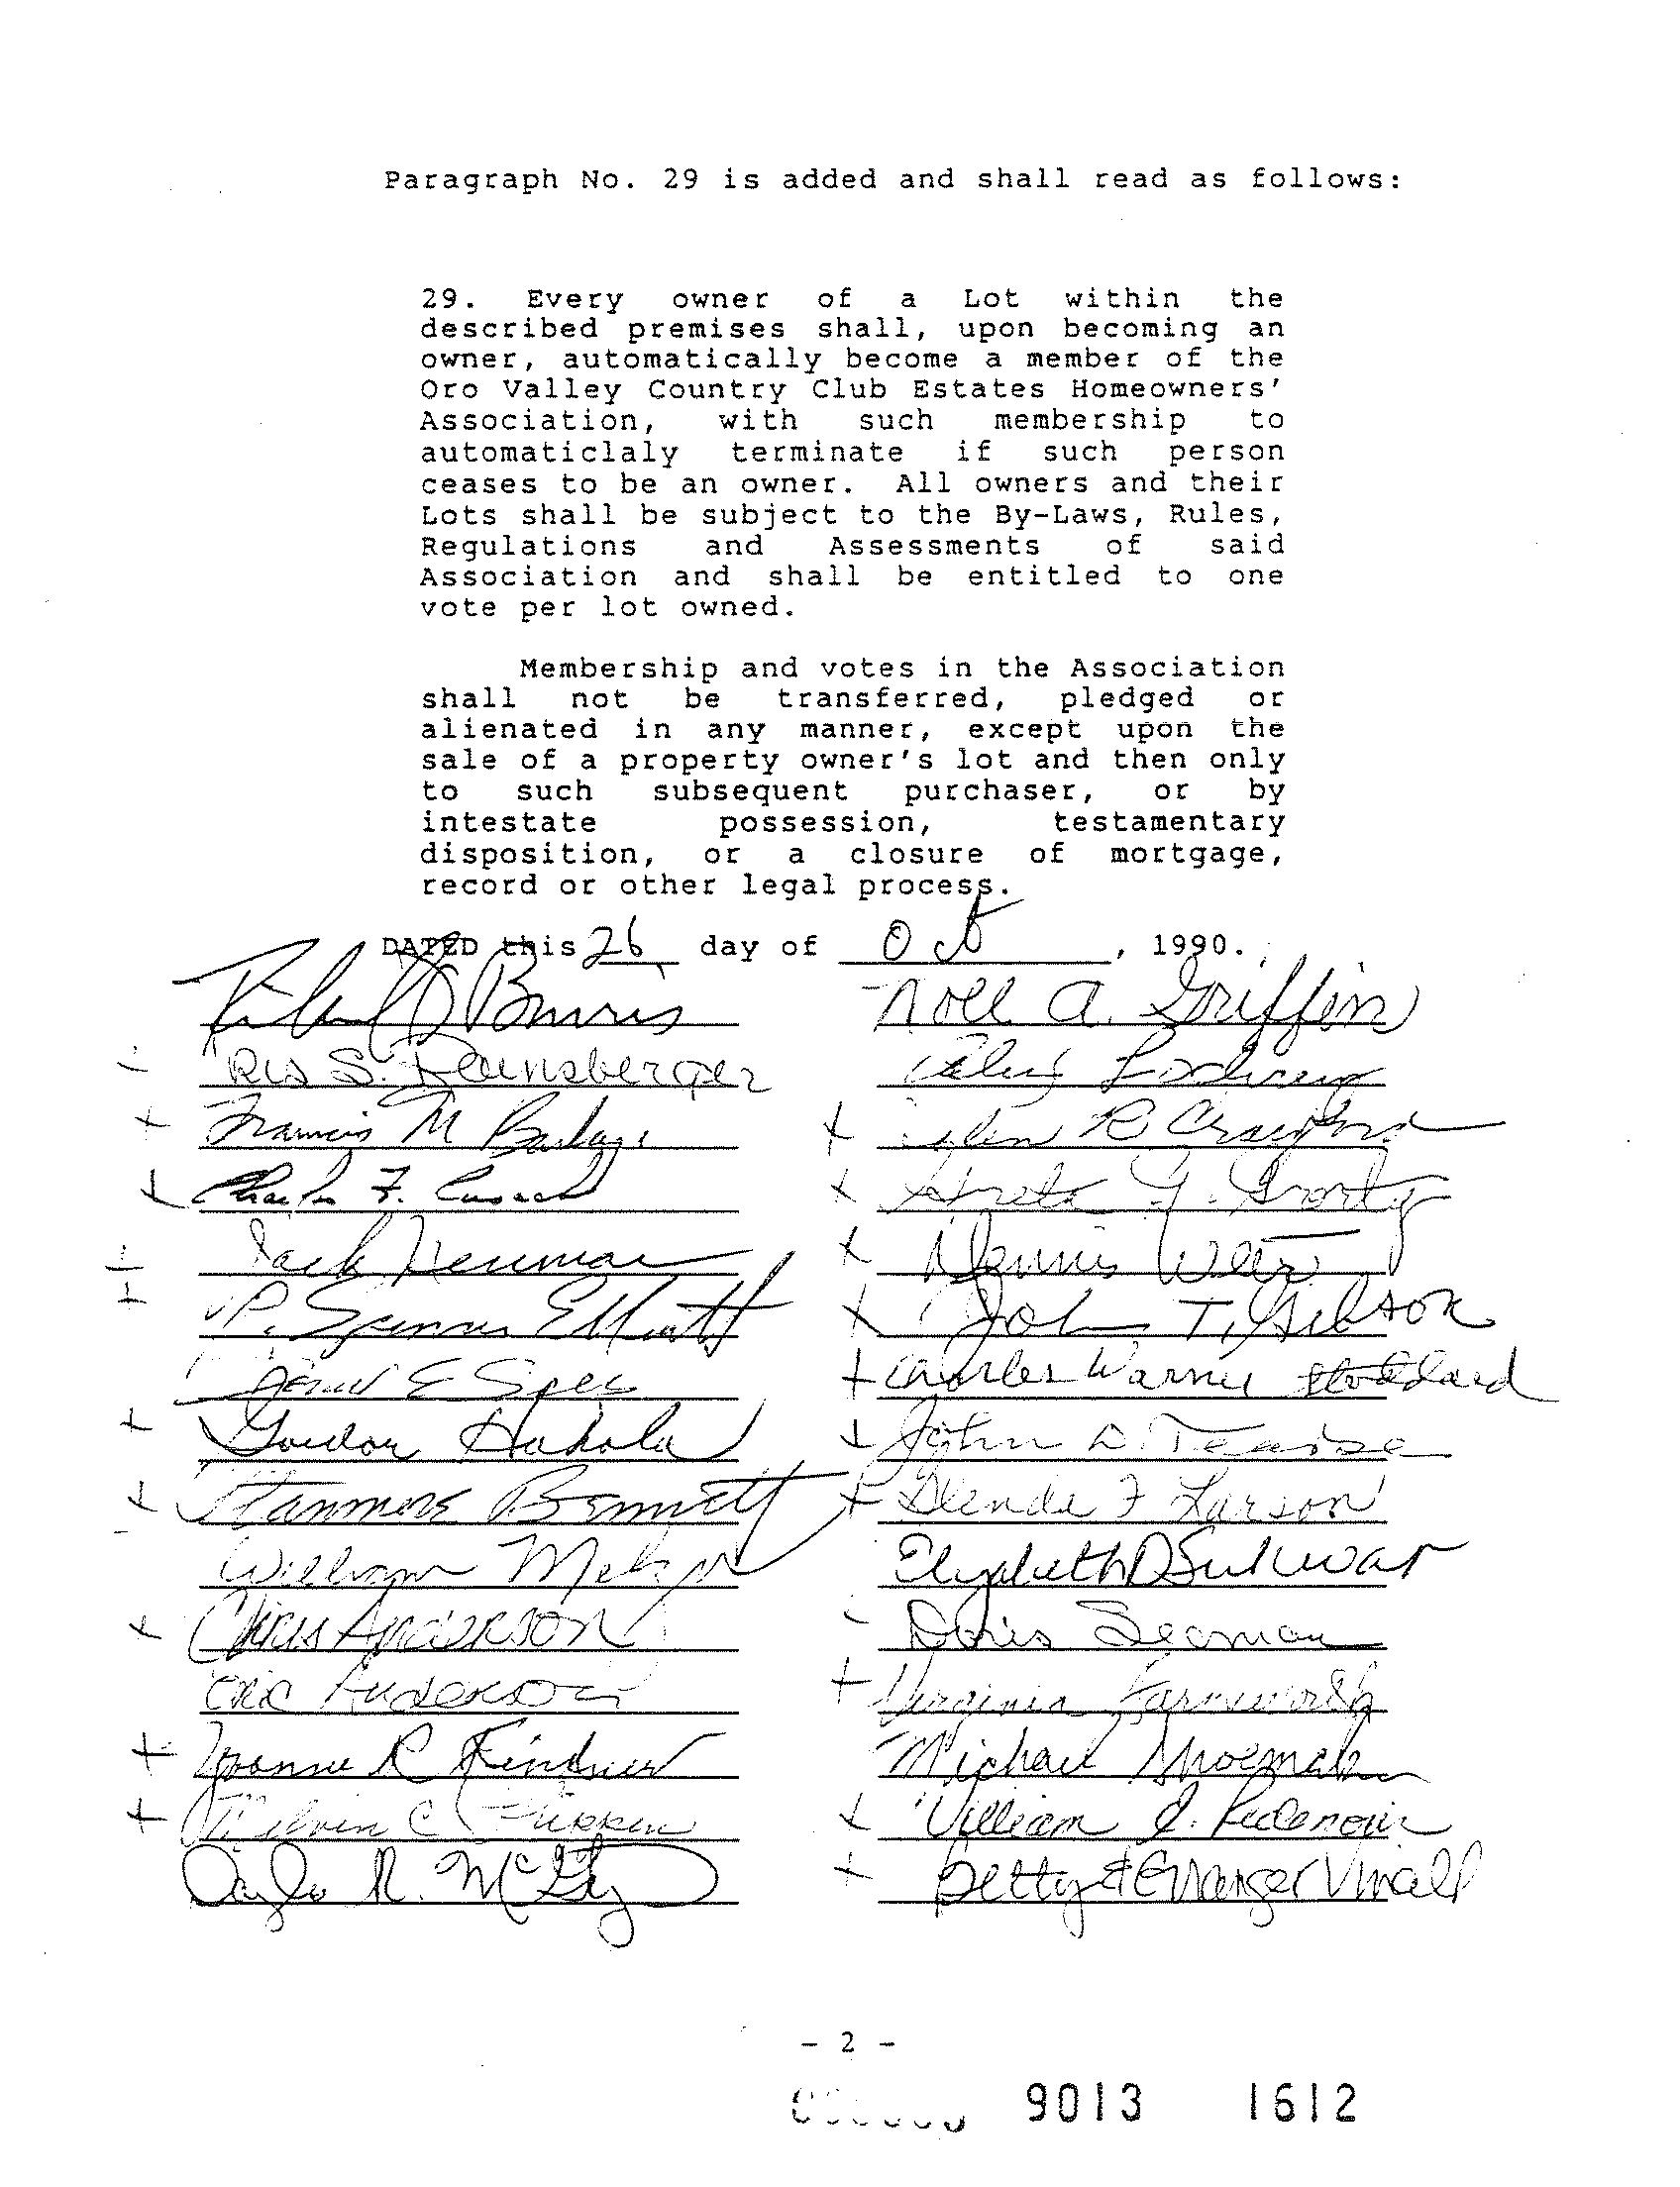 Paragraph No. 29 is added and shall read as follows:
29. Every owner of a Lot within the
described premises shall, upon becoming an
owner, automatically become a member of the
Oro Valley Country Club Estates Homeowners'
Association, with such membership to
automaticlaly terminate if such person
ceases to be an owner. All owners and their
Lots shall be subject to the By-Laws, Rules,
Regulations and Assessments of said
Association and shall be entitled to one
vote per lot owned.
Membership and votes in the Association
shall not be transferred, pledged or
alienated in any manner, except upon the
sale of a property owner's lot and then only
to such subsequent purchaser, or by
intestate possession, testamentary
disposition, or a closure of mortgage,
record or other legal process.
DATED this 26 day of Oct, 1990.
Burris
Noll A. Griffin
S.
Francis M
R Crawford
Charles F. Cusack
Jack Neuman
Dennis Weir
P. Spencer Elliott
John T. Gibson
E Speer
Charles Warner Stoddard
Gordon Hakola
John D.
Stanmore Bennett
Glenda F Larson
William
Elizabeth
Chris Anderson
Doris Seaman
Eric Anderson
Virginia Farnsworth
R Kindred
Michael Shoemaker
Melvin C
William
R.
Betty
- 2 -
9013 1612